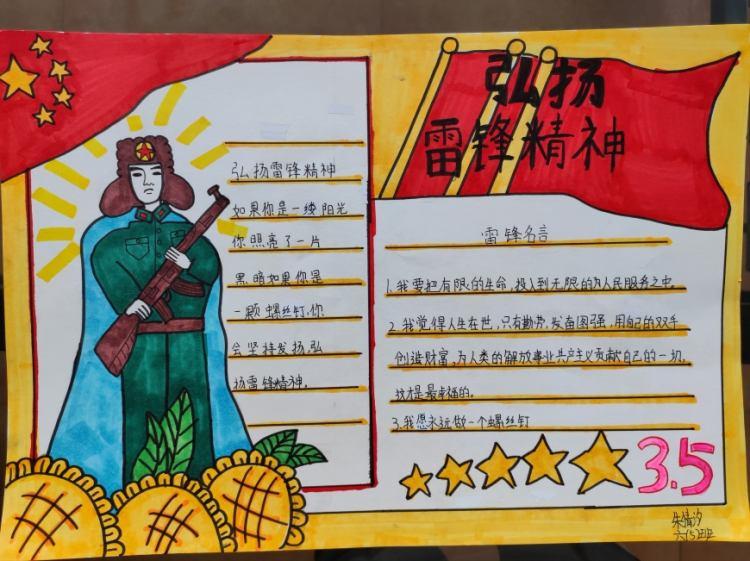 弘扬
雷锋精神
弘扬雷锋精神
如果你是一缕阳光
你照亮了一片
黑暗如果你是
一颗螺丝钉,你
会坚持发扬,弘
扬雷锋精神.
雷锋名言
1.我要把有限的生命,投入到无限的为人民服务之中.
2.我觉得人生在世,只有勤劳,发奋图强,用自己的双手
创造财富,为人类的解放事业共产主义贡献自己的一切,
这才是最幸福的.
3.我愿永远做一个螺丝钉
3.5
六(5)班